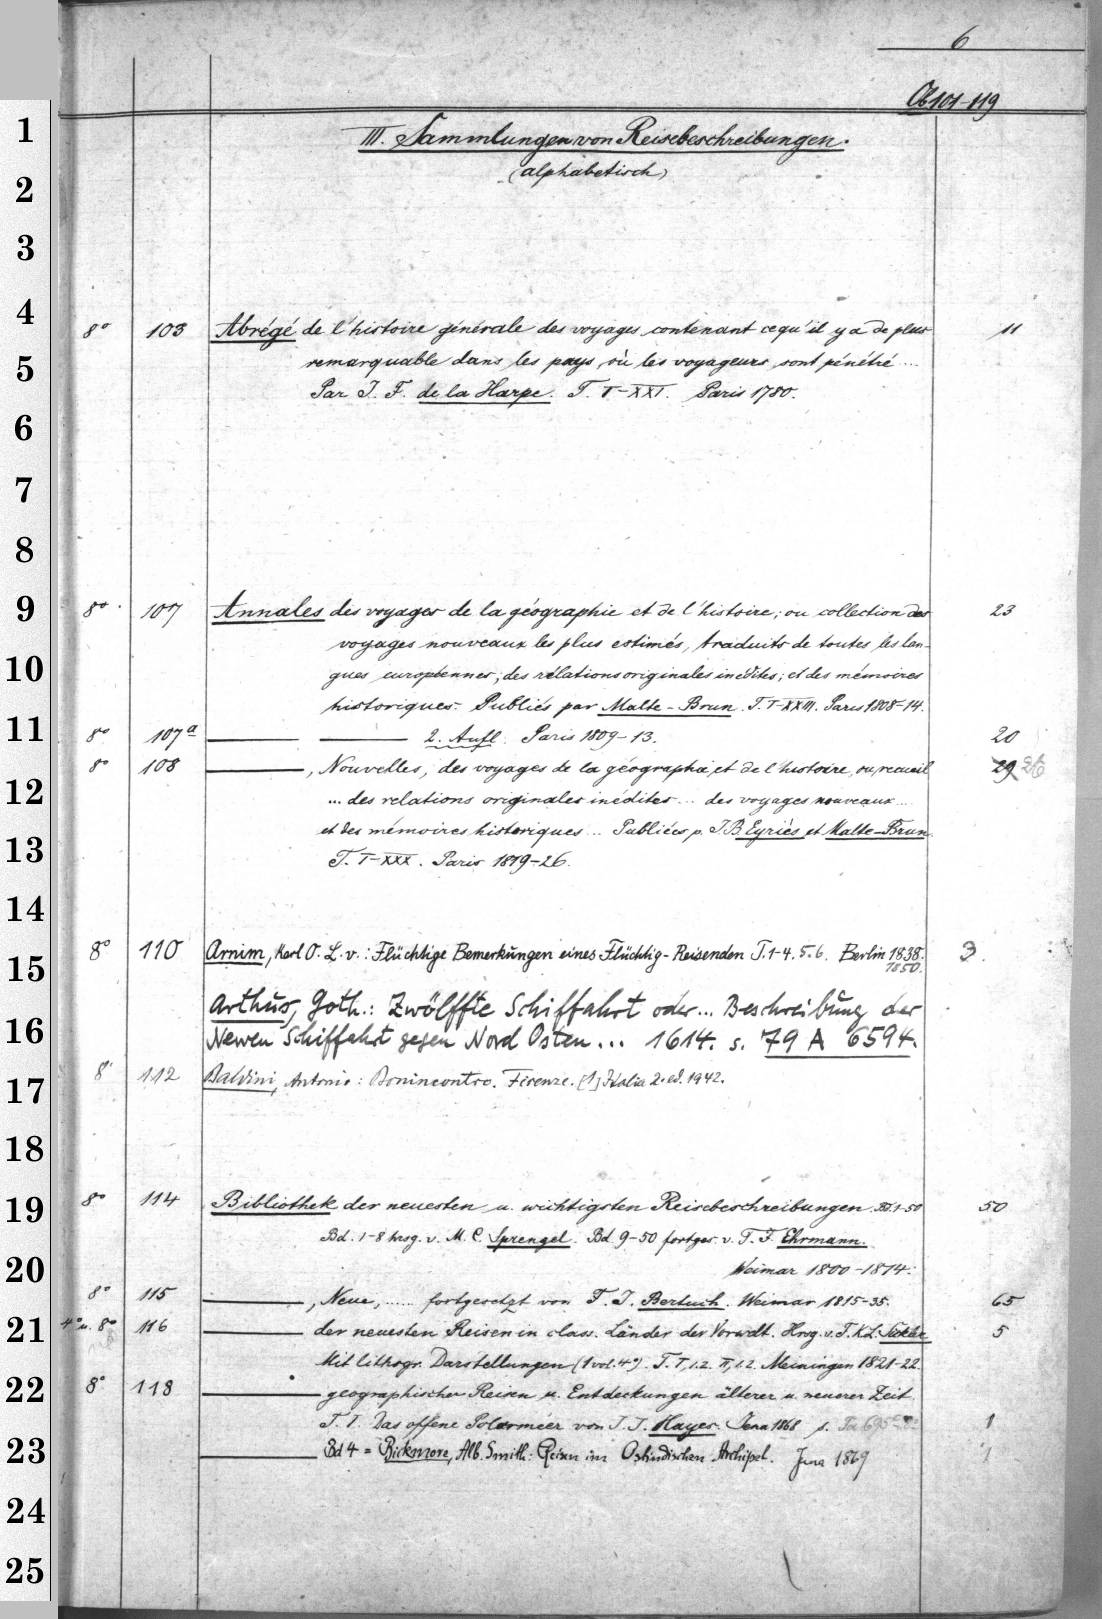 6
Ob 101-119
1
III. Sammlungen von Reisebeschreibungen.
2
(alphabetisch)
3
4
8° 103 Abrégé de l'histoire générale des voyages, contenant ce qu'il y a de plus 11
5
remarquable dans les pays, où les voyageurs sont pénétré ...
Par J. F. de la Harpe. T. I-XXI. Paris 1780.
6
7
8
9
8° 107 Annales des voyages de la géographie et de l'histoire; ou collection des 23
voyages nouveaux les plus estimés, traduits de toutes les lan-
10
gues européennes; des rélations originales inédites; et des mémoires
historiques. Publiés par Malte-Brun. T. I-XXIII. Paris 1808-14.
11
8° 107a 2. Aufl. Paris 1809-13. 20
8° 108 , Nouvelles, des voyages de la géographie, et de l'histoire, ou recueil 29 26
12
... des relations originales inédites ... des voyages nouveaux ...
et des mémoires historiques ... Publiées p. J B Eyriès et Malte-Brun
13
T. I-XXX. Paris 1819-26.
14
8° 110 Arnim, Karl O. L. v.: Flüchtige Bemerkungen eines Flüchtig-Reisenden T. 1-4. 5. 6. Berlin 1838. 3.
15
1850.
Arthus, Goth.: Zwölffte Schiffahrt oder... Beschreibung der
16
Newen Schiffahrt gegen Nord Osten ... 1614. s. 79 A 6594.
8° 112 Baldini, Antonio: Bonincontro. Firenze. [1] Italia 2. ed. 1942.
17
18
19
8° 114 Bibliothek der neuesten u. wichtigsten Reisebeschreibungen. Bd. 1-50 50
Bd. 1-8 hrsg. v. M. C. Sprengel. Bd 9-50 fortges. v. T. F. Ehrmann.
20
Weimar 1800-1814.
8° 115 , Neue, ...... fortgesetzt von F. J. Bertuch. Weimar 1815-35. 65
21
4° u. 8° 116 der neuesten Reisen in class. Länder der Vorwelt. Hrsg. v. F. K. L. Sickler 5
Mit lithogr. Darstellungen (1 vol. 4°) T. I, 1.2. II, 1.2. Meiningen 1821-22
22
8° 118 geographischer Reisen u. Entdeckungen älterer u. neuerer Zeit
T. I. Das offene Polarmeer von J. J. Hayes. Jena 1868 s. 1
23
Bd 4 = Bickmore, Alb. Smith: Reisen im Ostindischen Archipel. Jena 1869 1
24
25